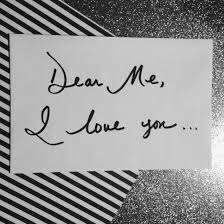 Dear Me,
I love you...